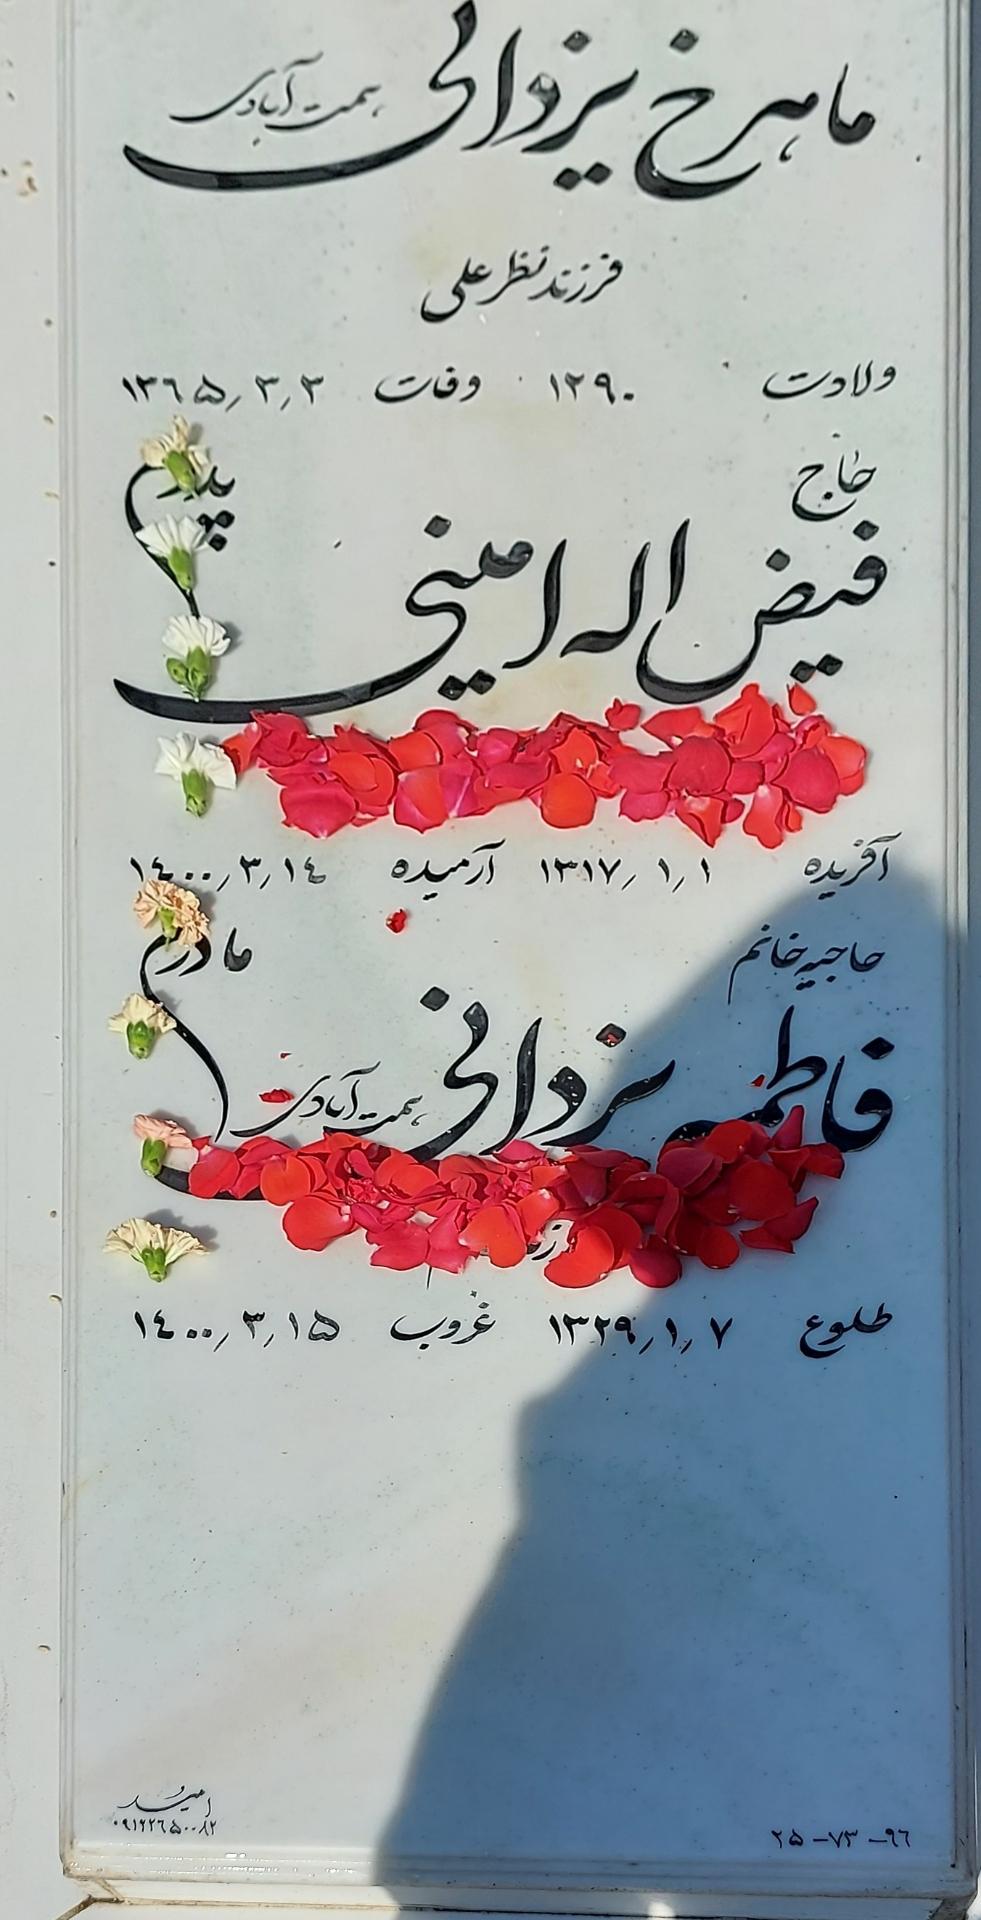 ماهرخ یزدانی همت آبادی
فرزند نظرعلی
ولادت ۱۲۹۰ وفات ۱۳۶۵/۳/۲
حاج پدرم
فیض اله امینی
آفریده ۱۳۱۷/۱/۱ آرمیده ۱۴۰۰/۳/۱۴
حاجیه خانم مادرم
فاطمه یزدانی همت آبادی
طلوع ۱۳۲۹/۱/۷ غروب ۱۴۰۰/۳/۱۵
امید
۰۹۱۲۲۶۵۰۰۸۲
۲۵-۷۳-۹۶